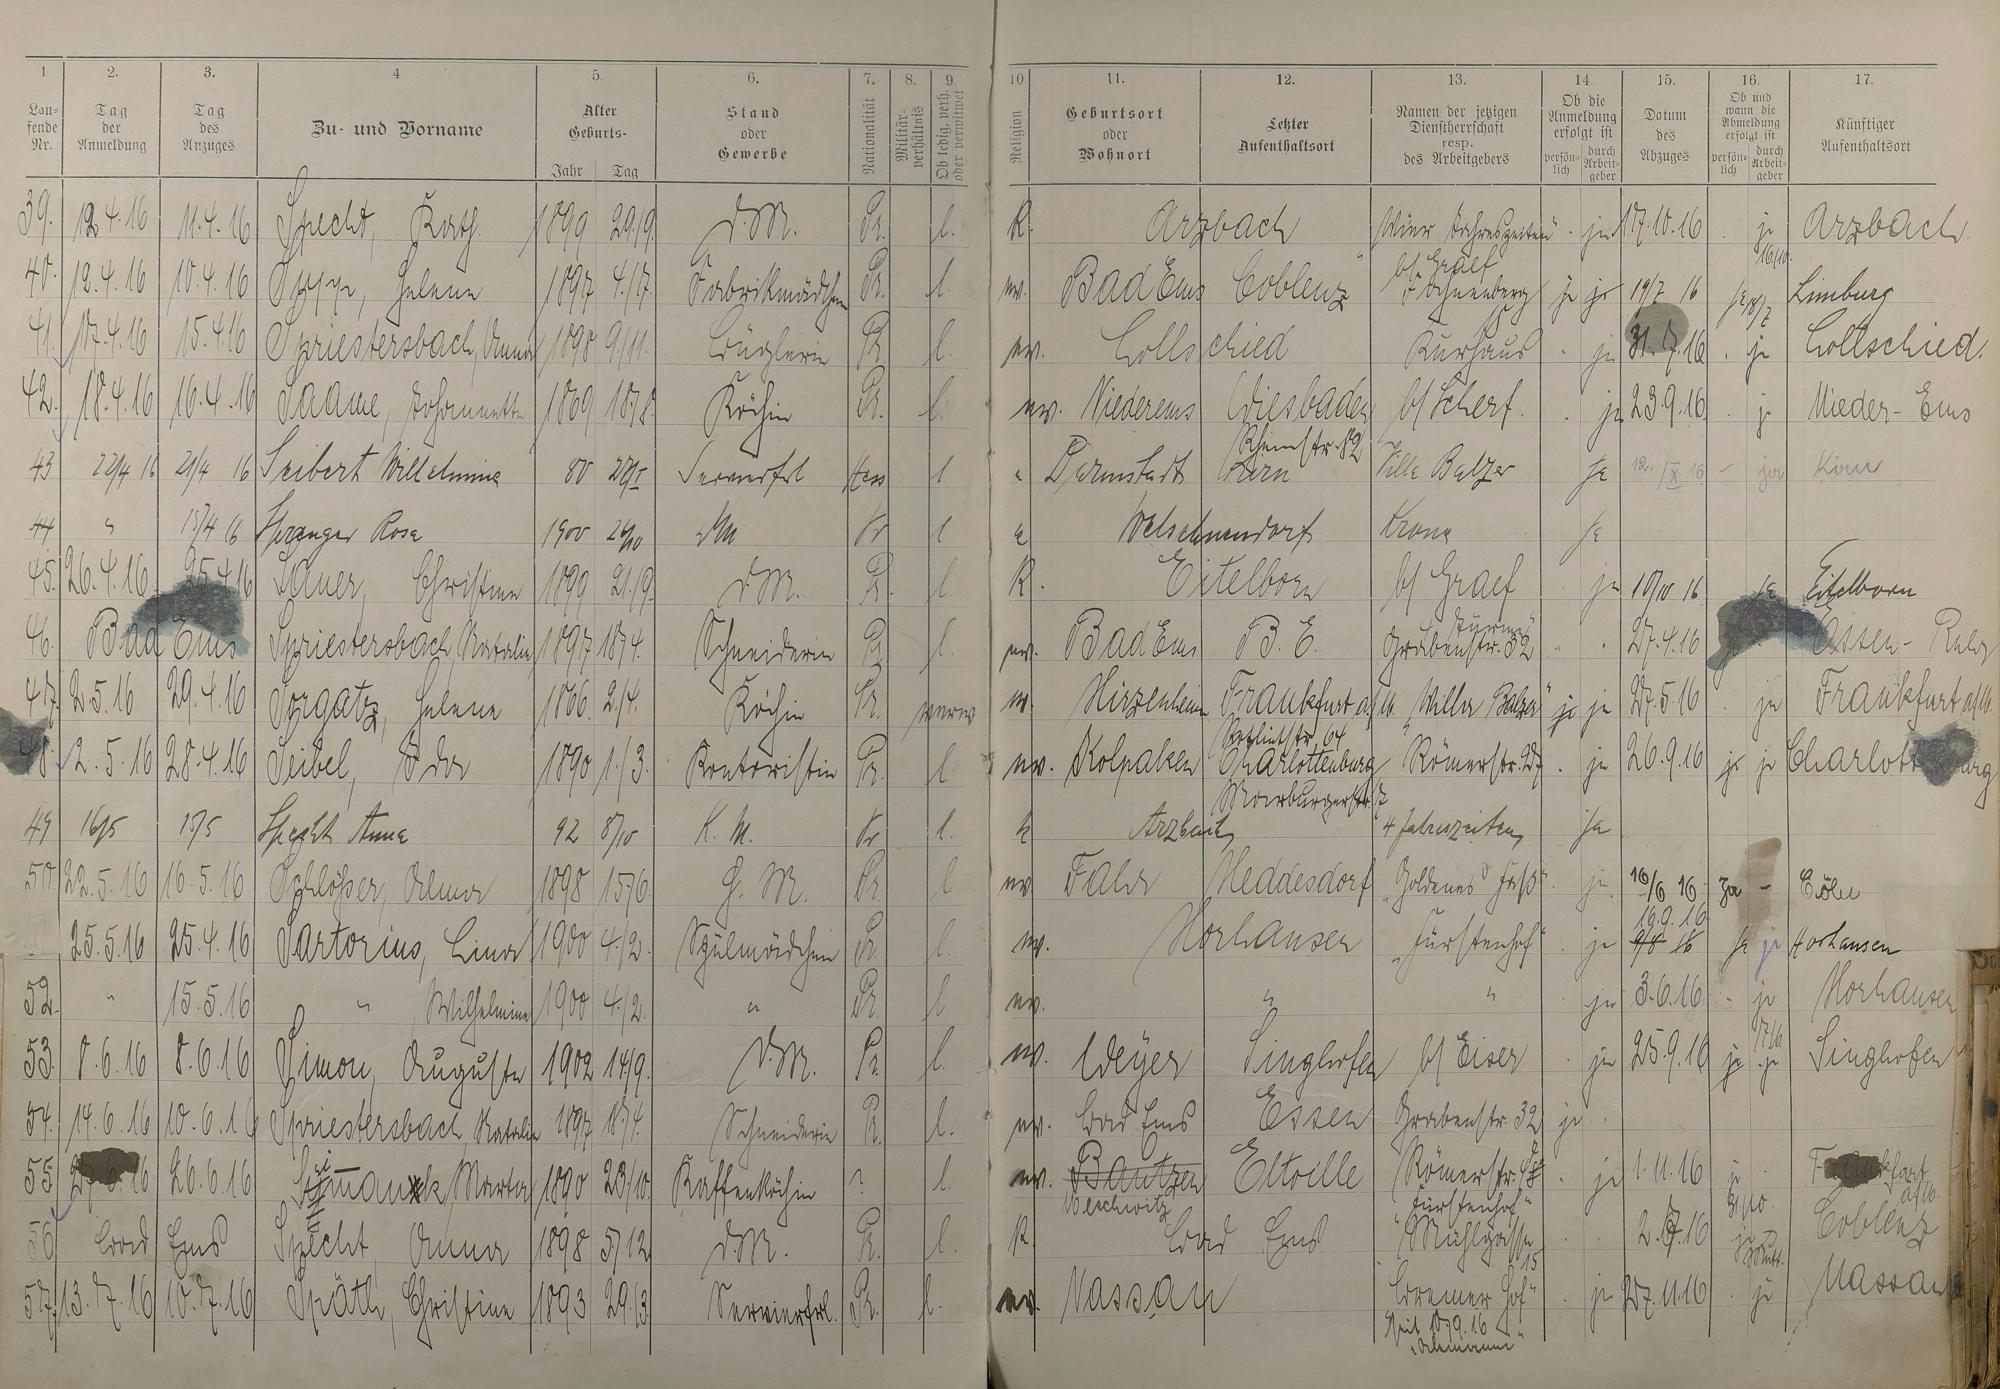 1 2. 3. 4 5. 6. 7. 8. 9. 10 11. 12. 13. 14. 15. 16. 17.
Lau-
fende
Nr.
Tag
der
Anmeldung
Tag
des
Anzuges
Zu- und Vorname
Alter
Geburts-
Jahr Tag
Stand
oder
Gewerbe
Nationalität
Militär-
verhältnis
Ob ledig, verh.
oder verwitwet
Religion
Geburtsort
oder
Wohnort
Letzter
Aufenthaltsort
Namen der jetzigen
Dienstherrschaft
resp.
des Arbeitgebers
Ob die
Anmeldung
erfolgt ist
persön-
lich
durch
Arbeit-
geber
Datum
des
Abzuges
Ob und
wann die
Abmeldung
erfolgt ist
persön-
lich
durch
Arbeit-
geber
Künftiger
Aufenthaltsort
39. 12.4.16 11.4.16 Specht, Kath. 1899 29/9. D.M. Pr. l. K. Arzbach Jahreszeiten" ja 17.10.16 ja Arzbach
16/10.
40. 12.4.16 10.4.16 Helene 1897 4/7. Fabrikmädchen Pr. l. ev. Bad Ems Coblenz b/ Graef ja 19/7 16 18/7 Limburg
41. 17.4.16 15.4.16 Spriestersbach, Anna 1898 9/11. Büglerin Pr. l. ev. Lollschied Kurhaus ja 31.7.16 ja Lollschied.
42. 18.4.16 16.4.16 Saame, Johannette 1869 Köchin Pr. l. ev. Niederems Wiesbaden b/ Scherf. ja 23.9.16 ja Nieder-Ems
Rheinstr. 82
43 22/4 16 21/4 16 Seibert Wilhelmine 80 Servierfrl Hess l Darmstadt Villa Balzer Ja 12./X.16 - ja Kirn
44 " 15/4 16 Spranger Rosa 1900 26/10 DM Pr l Welschneudorf Krone Ja
45. 26.4.16 25.4.16 Sauer, Christine 1899 21/9. D.M. Pr. l. K. Eitelborn b/ Graef ja 10/10 16 Eitelborn
46. Bad Ems Spriestersbach, Natalie 1897 18/4. Schneiderin Pr. l. ev. Bad Ems B. E. Grabenstr. 32 27.4.16 Essen-Ruhr
47. 2.5.16 29.4.16 Sorgatz, Helene 1866. 2/4. Köchin Pr. verw ev. Hirzenhain Frankfurt a/M. "Villa Balzer" ja 27.5.16 ja Frankfurt a/M.
48. 2.5.16 28.4.16 Seibel, Ida 1890 1./3. Kontoristin Pr. l ev. Kolpaken Charlottenburg Römerstr. 27 ja 26.9.16 ja ja Charlottenburg
49 16/5 15/5 Specht Anna 92 8/10 K. M. Pr l. k Arzbach 4 Jahreszeiten Ja
50. 22.5.16 16.5.16 Schlösser, Alma 1898 15/6. G. M. Pr. l ev. Fahr Heddesdorf "Goldenes Faß" ja 16/6 16 Ja - Cöln
16.9.16
25.5.16 25.4.16 Sartorius, Lina 1900 4./2. Spülmädchen Pr. l. ev. Horhausen "Fürstenhof" ja 9/8 16 Ja ja Horhausen
52. " 15.5.16 " , Wilhelmine 1900 4./2. " Pr. l. ev. " " ja 3.6.16 - ja Horhausen
53. 8.6.16 8.6.16 Simon, Auguste 1902 14/9. D.M. Pr. l. ev. Weyer Singhofen b/ Eiser ja 25.9.16 ja ja Singhofen
54. 14.6.16 10.6.16 Spriestersbach, Natalie 1897 18/4. Schneiderin Pr. l. ev. Bad Ems Essen Grabenstr. 32 ja
55. 26.6.16 Marta 1890 23/10. Kaffeeköchin ? l. ev. Bautzen Eltville Römerstr. 48 ja 1.11.16 ja Frankfurt
a/M.
"Fürstenhof"
56 Bad Ems Specht, Anna 1898 5/12 D.M. Pr. l. K. Bad Ems Mühlgasse 15 ja Coblenz
57. 13.7.16 10.7.16 Späth, Christine 1893 29/3. Servierfrl. Pr. l. ev. Nassau "Bremer Hof" ja 27.11.16 ja Nassau